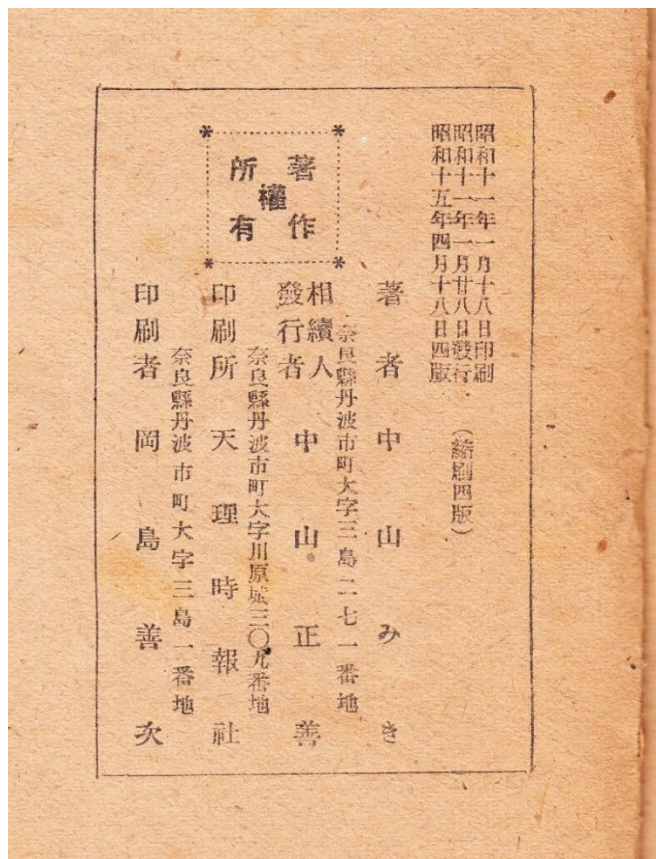 昭和十一年一月十八日印刷
昭和十一年一月廿八日發行
昭和十五年四月十八日四版
(縮刷四版)
著作權所有
著者 中山みき
奈良縣丹波市町大字三島二七一番地
相續人
發行者 中山正善
奈良縣丹波市町大字川原城三〇九番地
印刷所 天理時報社
奈良縣丹波市町大字三島一番地
印刷者 岡島善次